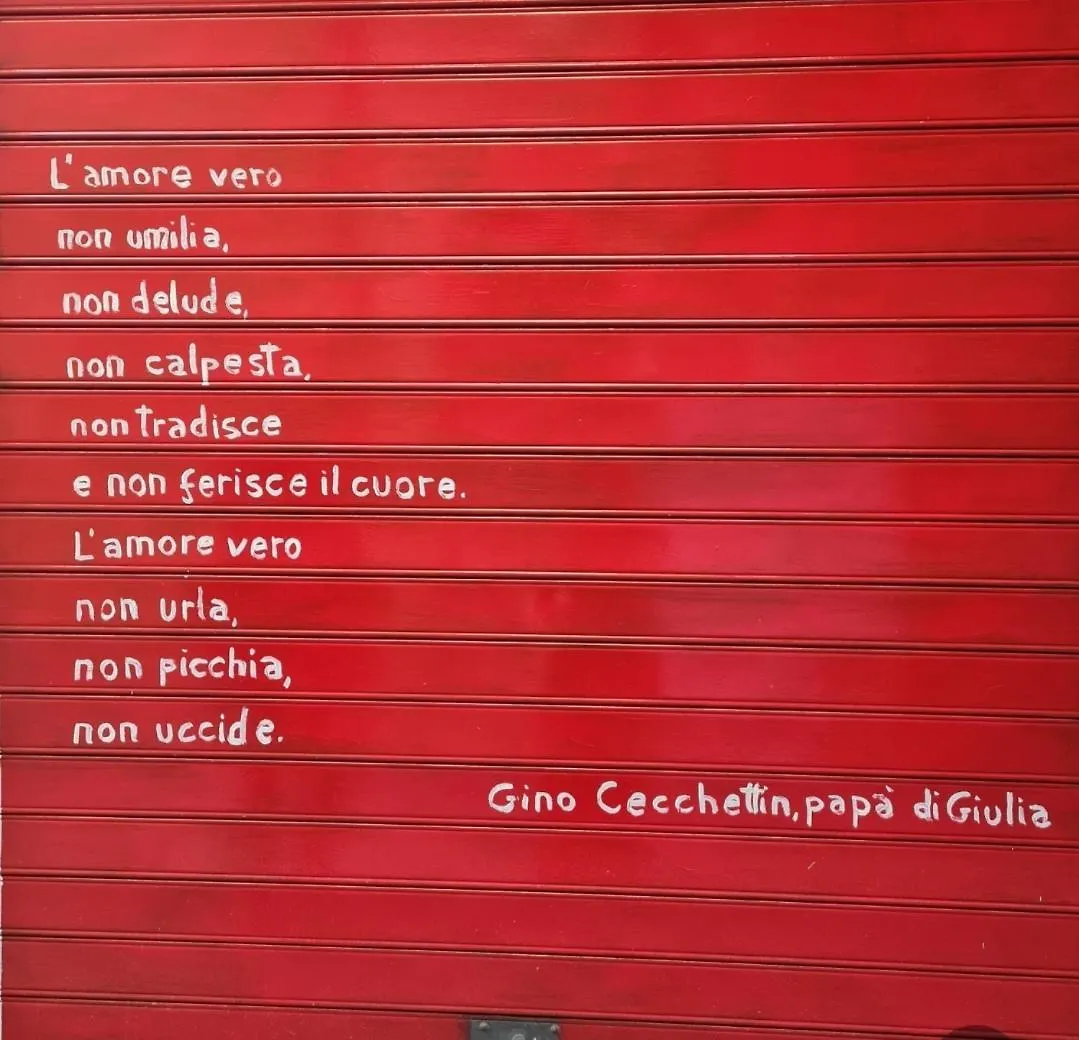 L'amore vero
non umilia,
non delude,
non calpesta,
non tradisce
e non ferisce il cuore.
L'amore vero
non urla,
non picchia,
non uccide.
Gino Cecchettin, papà di Giulia